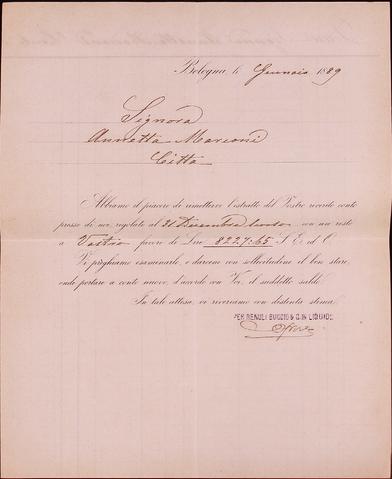 Bologna, li Gennaio 1889
Signora
Annetta Marconi
Città
Abbiamo il piacere di rimettervi l'estratto del Vostro ricordo conto
presso di noi, regolato al 31 Dicembre con un resto
a Vostro favore di Lire 8227.65 S. E. ed O.
Vi preghiamo esaminarlo, e darcene con sollecitudine il ben stare,
onde portare a conto nuovo, d'accordo con Voi, il suddetto saldo.
In tale attesa, vi riveriamo con distinta stima.
PER RENOLI BUGGIO & C. IN LIQUIDE